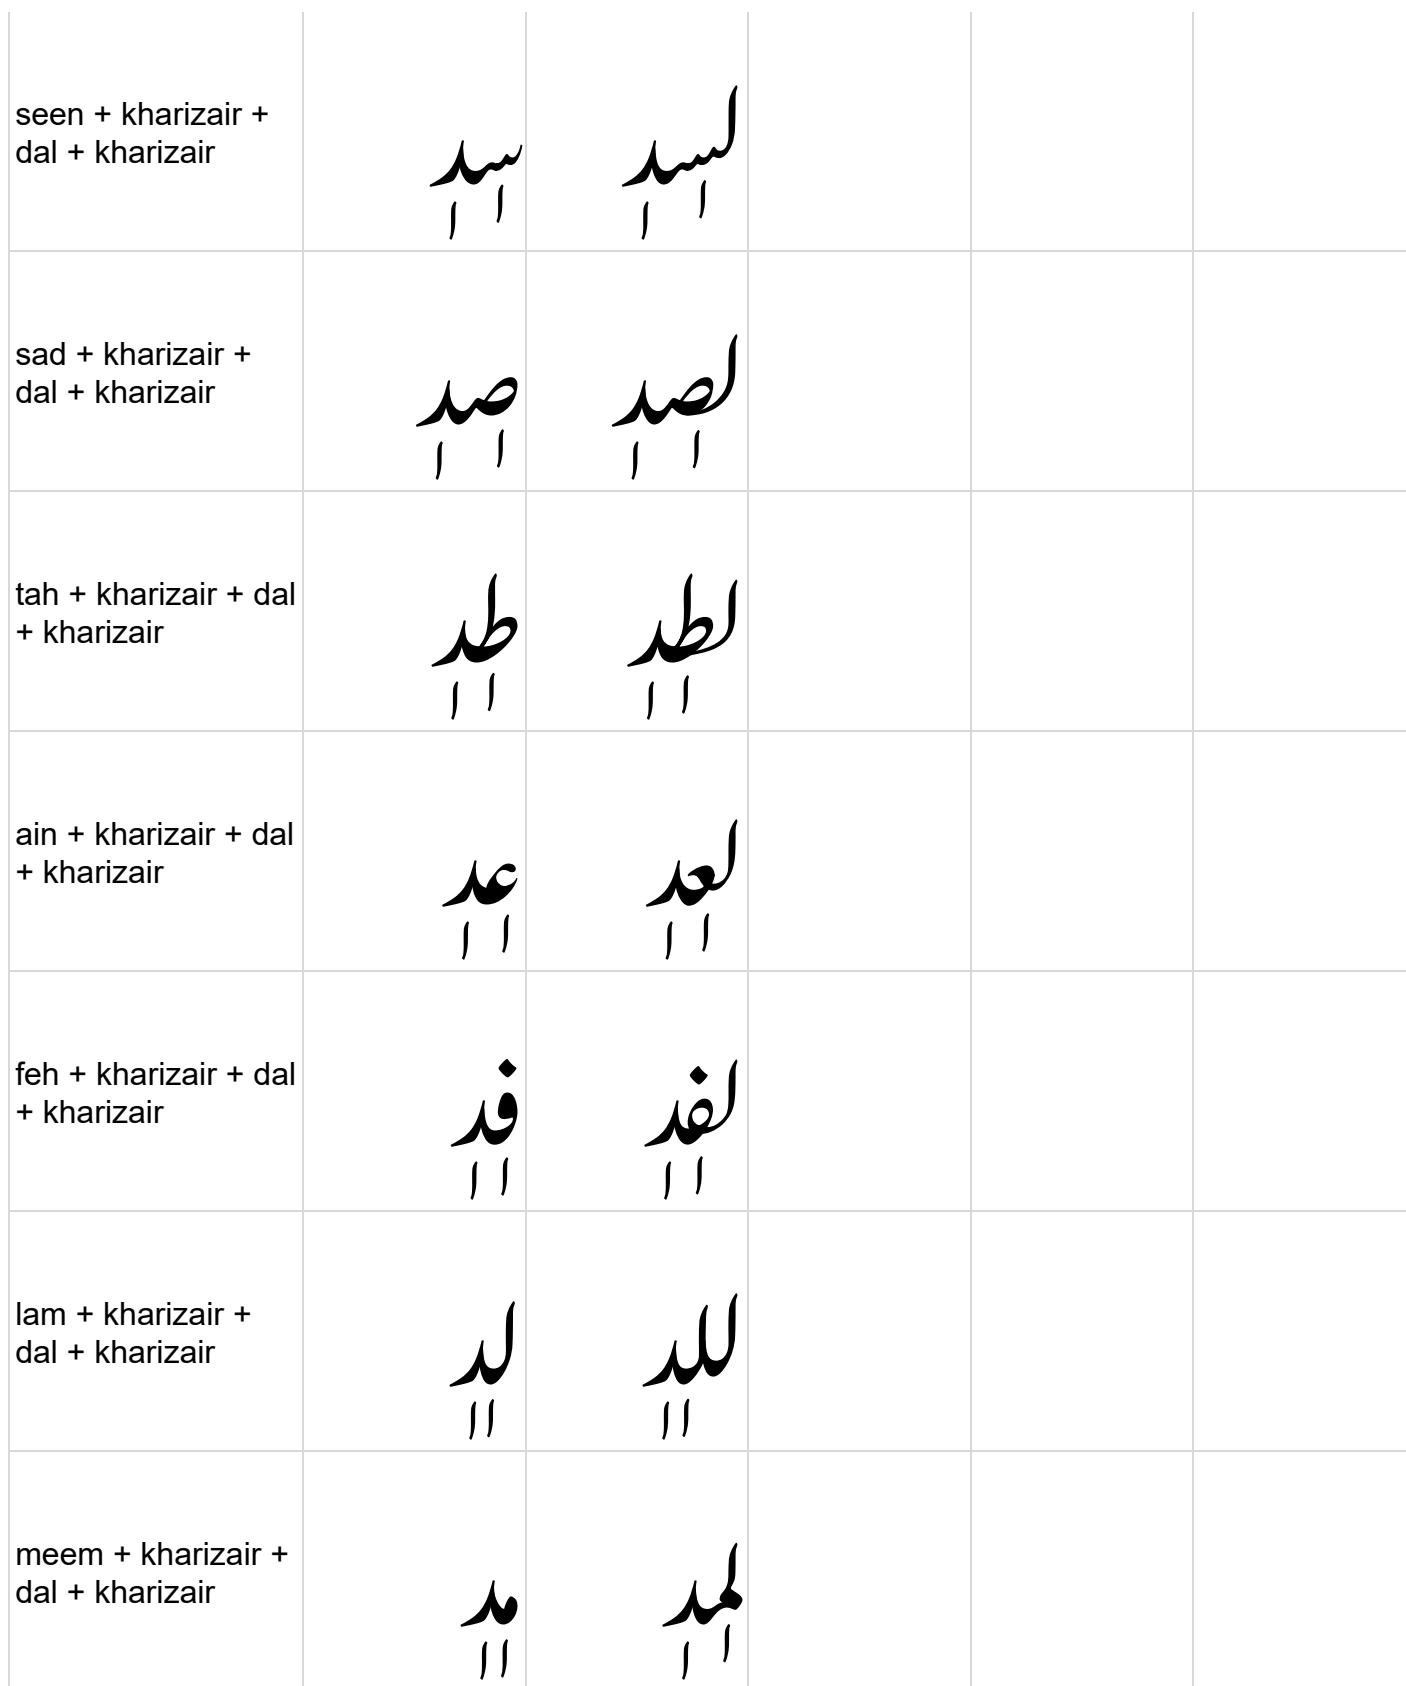 seen + kharizair +
dal + kharizair
سٖدٖ
لسٖدٖ
sad + kharizair +
dal + kharizair
صٖدٖ
لصٖدٖ
tah + kharizair + dal
+ kharizair
طٖدٖ
لطٖدٖ
ain + kharizair + dal
+ kharizair
عٖدٖ
لعٖدٖ
feh + kharizair + dal
+ kharizair
فٖدٖ
لفٖدٖ
lam + kharizair +
dal + kharizair
لٖدٖ
للٖدٖ
meem + kharizair +
dal + kharizair
مٖدٖ
لمٖدٖ